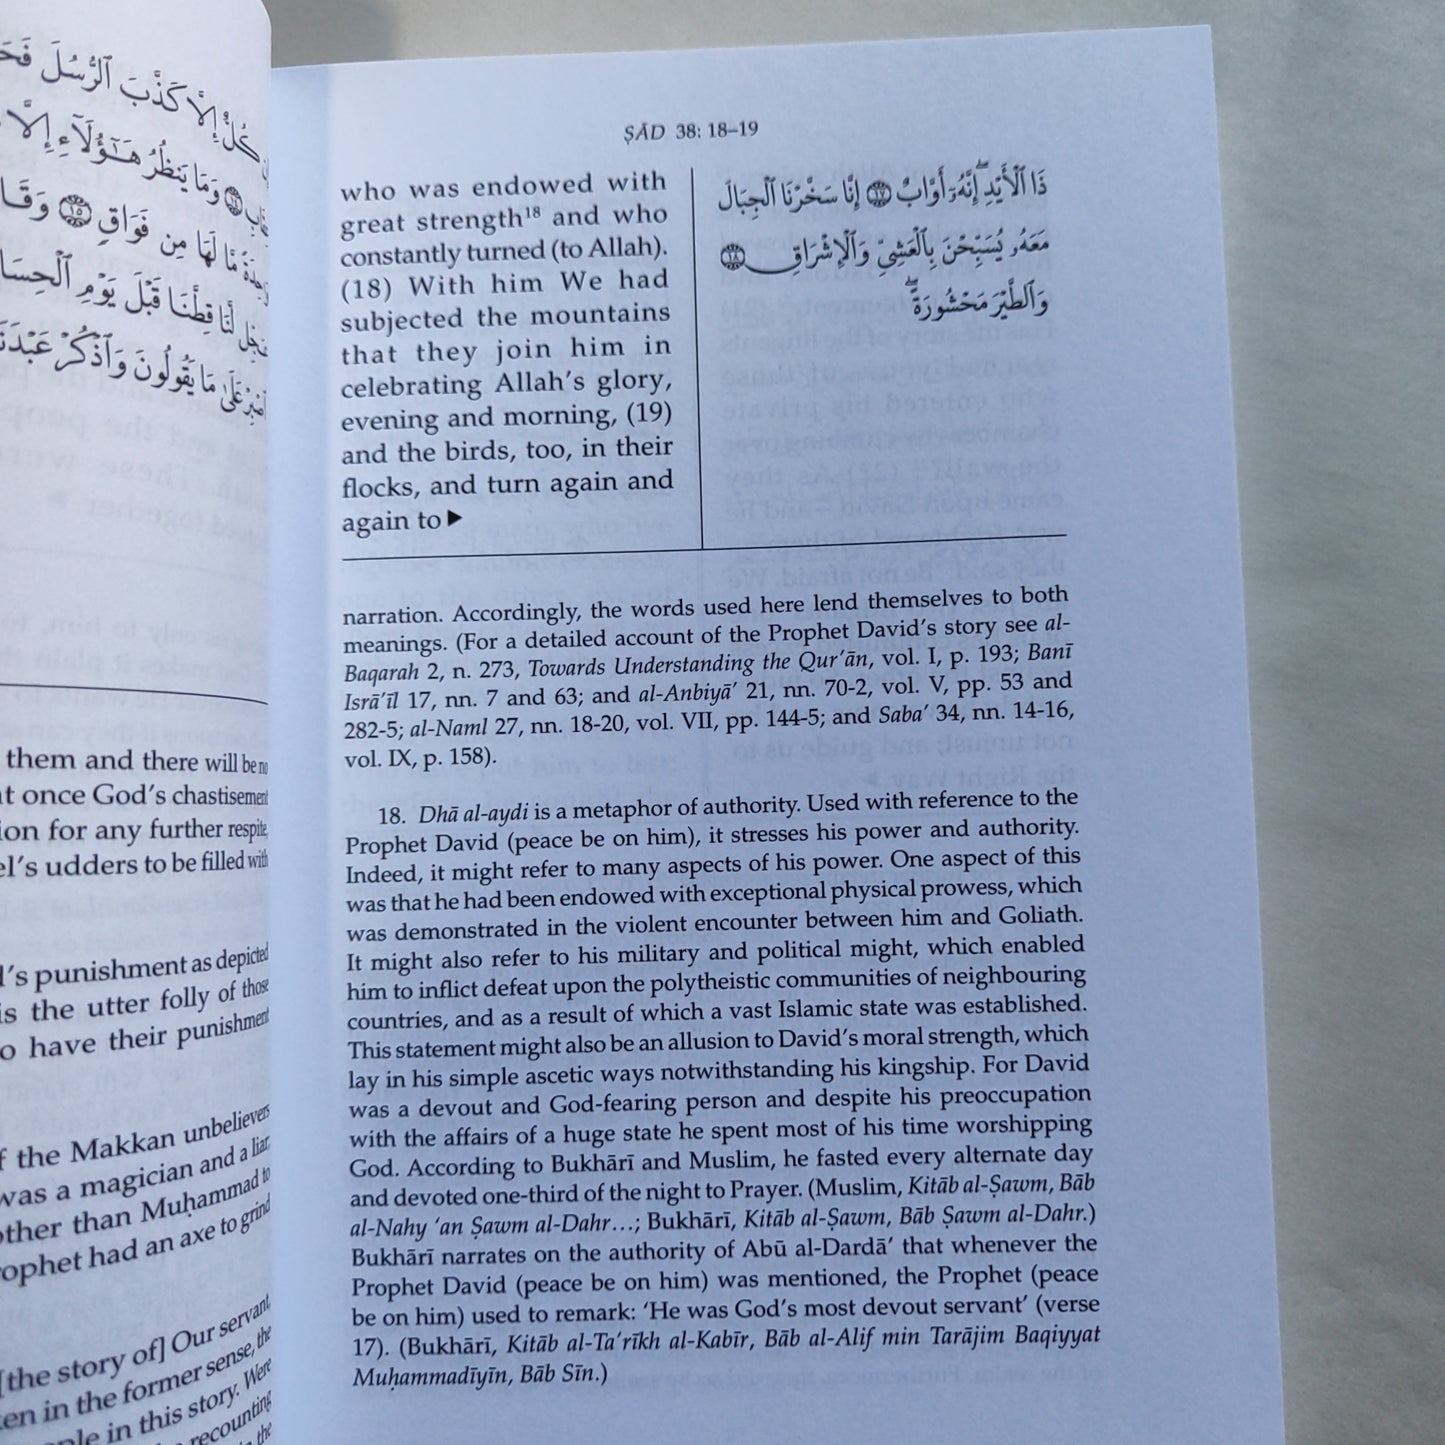 كُلٌّ إِلَّا كَذَّبَ ٱلرُّسُلَ
وَمَا يَنظُرُ هَـٰٓؤُلَآءِ إِلَّا
مَّا لَهَا مِن فَوَاقٍ ۝١٥
لَّنَا قِطَّنَا قَبْلَ يَوْمِ
عَلَىٰ مَا يَقُولُونَ وَٱذْكُرْ
them and there will be no
at once God's chastisement
for any further respite,
udders to be filled with
punishment as depicted
is the utter folly of those
to have their punishment
of the Makkan unbelievers
was a magician and a liar,
other than Muḥammad to
had an axe to grind
[the story of] Our servant,
in the former sense, the
in this story. Were
recounting
the
ṢĀD 38: 18–19
who was endowed with
great strength¹⁸ and who
constantly turned (to Allah).
(18) With him We had
subjected the mountains
that they join him in
celebrating Allah's glory,
evening and morning, (19)
and the birds, too, in their
flocks, and turn again and
again to ▶
ذَا ٱلْأَيْدِ ۖ إِنَّهُۥٓ أَوَّابٌ ۝١٧ إِنَّا سَخَّرْنَا ٱلْجِبَالَ
مَعَهُۥ يُسَبِّحْنَ بِٱلْعَشِىِّ وَٱلْإِشْرَاقِ ۝١٨
وَٱلطَّيْرَ مَحْشُورَةً ۖ
narration. Accordingly, the words used here lend themselves to both
meanings. (For a detailed account of the Prophet David's story see al-
Baqarah 2, n. 273, Towards Understanding the Qur'ān, vol. I, p. 193; Banī
Isrā'īl 17, nn. 7 and 63; and al-Anbiyā' 21, nn. 70-2, vol. V, pp. 53 and
282-5; al-Naml 27, nn. 18-20, vol. VII, pp. 144-5; and Saba' 34, nn. 14-16,
vol. IX, p. 158).
18. Dhā al-aydi is a metaphor of authority. Used with reference to the
Prophet David (peace be on him), it stresses his power and authority.
Indeed, it might refer to many aspects of his power. One aspect of this
was that he had been endowed with exceptional physical prowess, which
was demonstrated in the violent encounter between him and Goliath.
It might also refer to his military and political might, which enabled
him to inflict defeat upon the polytheistic communities of neighbouring
countries, and as a result of which a vast Islamic state was established.
This statement might also be an allusion to David's moral strength, which
lay in his simple ascetic ways notwithstanding his kingship. For David
was a devout and God-fearing person and despite his preoccupation
with the affairs of a huge state he spent most of his time worshipping
God. According to Bukhārī and Muslim, he fasted every alternate day
and devoted one-third of the night to Prayer. (Muslim, Kitāb al-Ṣawm, Bāb
al-Nahy 'an Ṣawm al-Dahr...; Bukhārī, Kitāb al-Ṣawm, Bāb Ṣawm al-Dahr.)
Bukhārī narrates on the authority of Abū al-Dardā' that whenever the
Prophet David (peace be on him) was mentioned, the Prophet (peace
be on him) used to remark: 'He was God's most devout servant' (verse
17). (Bukhārī, Kitāb al-Ta'rīkh al-Kabīr, Bāb al-Alif min Tarājim Baqiyyat
Muḥammadīyīn, Bāb Sīn.)